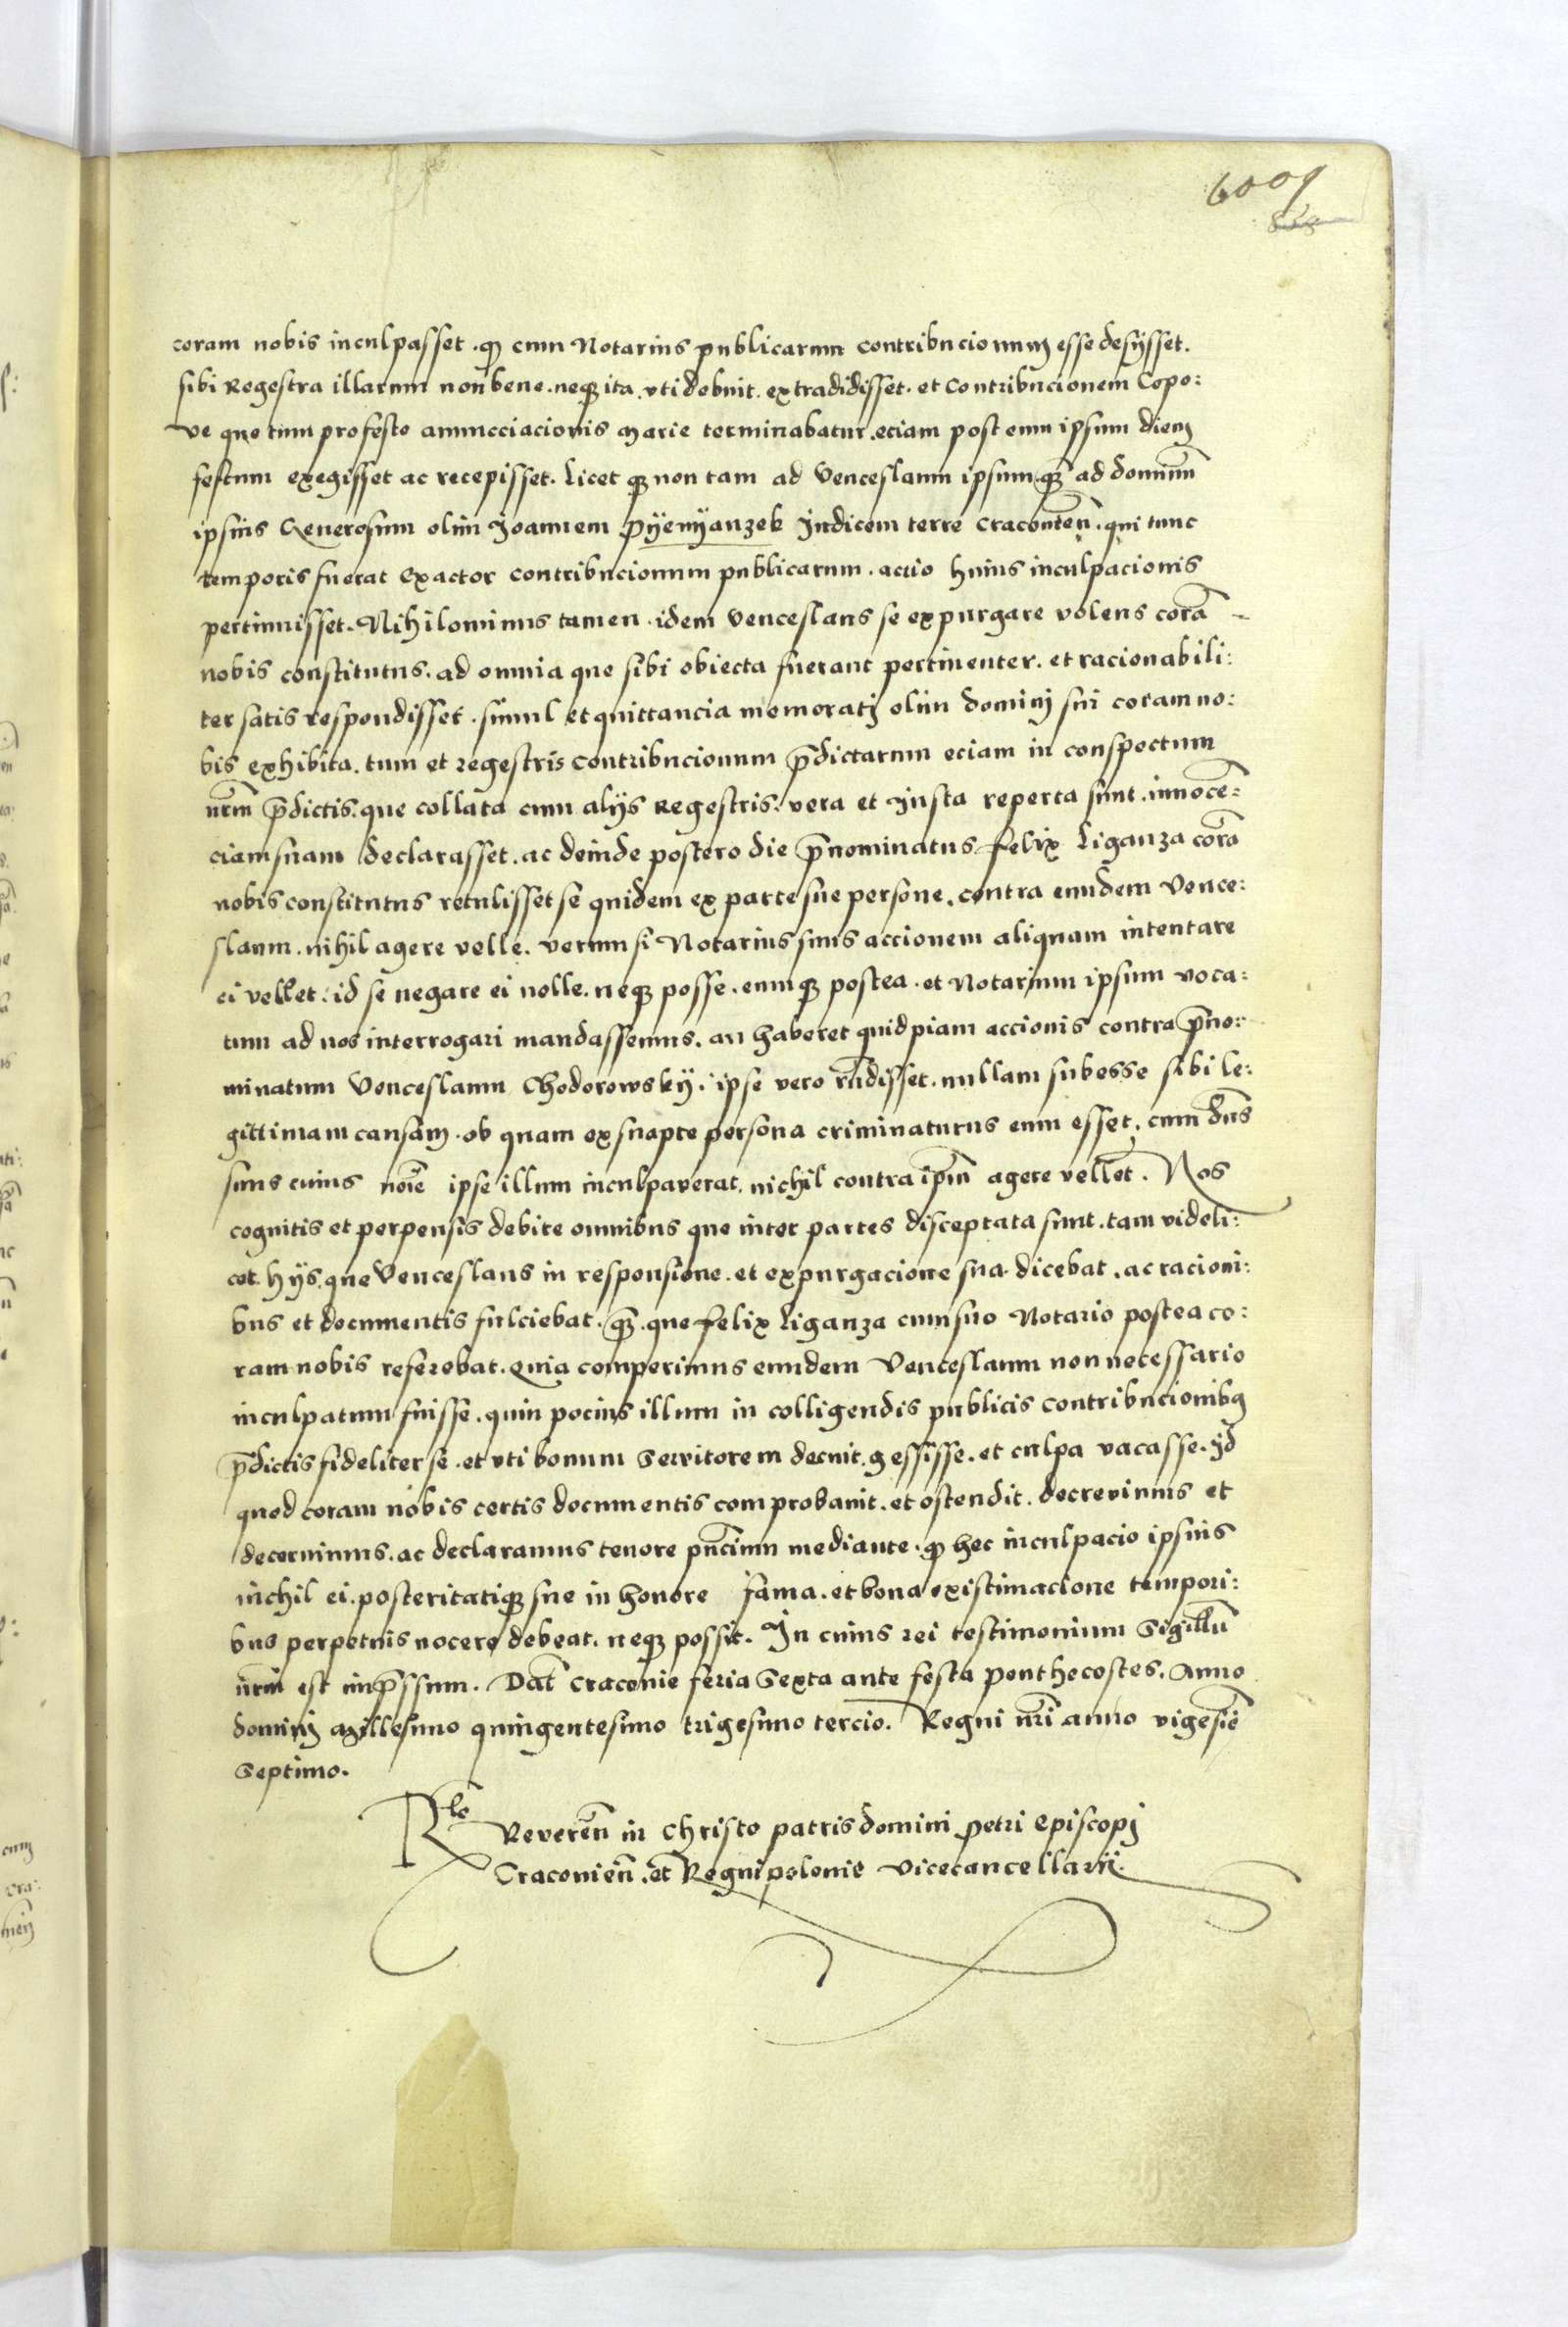 6009
coram nobis inculpasset. ꝙ cum Notarius publicarum contribucionum esse desijsset.
sibi Regestra illarum non bene. neqꝫ ita. vti debuit. extradidisset. et Contribucionem Czopo:
ve que tum pro festo annuncciacionis Marie terminabatur. eciam post eum ipsum diem
festum exegisset ac recepisset. Licet qꝫ non tam ad Venceslaum ipsum. qꝫ̄ ad dominū
ipsius Generosum olim Joannem Pÿenÿanzek Judicem terre Cracouieñ. qui tunc
temporis fuerat Exactor contribucionum publicarum. actio huius inculpacionis
pertinuisset. Nihilominus tamen. idem Venceslaus se expurgare volens corā
nobis constitutus. ad omnia que sibi obiecta fuerant pertinenter. et racionabili:
ter satis respondisset. simul et quittancia memoratj olim dominj sui coram no:
bis exhibita. tum et regestris contribucionum p̄dictarum eciam in conspectum
nr̄m p̄dictis. que collata cum alijs Regestris. vera et Justa reperta sunt. innocē:
ciam suam declarasset. ac deinde postero die p̄nominatus Felix Liganza corā
nobis constitutus retulisset se quidem ex parte sue persone. contra eundem Vence:
slaum. nihil agere velle. verum si Notarius suus accionem aliquam intentare
ei vellet. id se negare ei nolle. neqꝫ posse. eumqꝫ postea. et Notarium ipsum voca:
tum ad nos interrogari mandassemus. an haberet quidpiam accionis contra p̄no:
minatum Venceslaum Chodorowskÿ. ipse vero rn̄disset. nullam subesse sibi le:
gittimam causam. ob quam ex suapte persona criminaturus eum esset. cum dn̄s
suus cuius noīe ipse illum inculpauerat. nichil contra ip̄m agere vellet. Nos
cognitis et perpensis debite omnibus que inter partes disceptata sunt. tam videli:
cet. hÿs. que Venceslaus in responsione. et expurgacione sua. dicebat. ac racioni:
bus et documentis fulciebat. qꝫ̄. que Felix Liganza cum suo Notario postea co:
ram nobis referebat. Quia comperimus eundem Venceslaum non necessario
inculpatum fuisse. quin pocius illum in colligendis publicis contribucionibꝫ
p̄dictis fideliter se. et vti bonum Servitorem decuit. gessisse. et culpa vacasse. Jd
quod coram nobis certis documentis comprobauit. et ostendit. decrevimus et
decernimus. ac declaramus tenore pn̄cium mediante. ꝙ hec inculpacio ipsius
nichil ei. posteritatiqꝫ sue in honore fama. et bona existimacione tempori:
bus perpetuis nocere debeat. neqꝫ possit. In cuius rei testimonium Sigillū
nr̄m est imp̄ssum. Dat̄ Cracouie feria Sexta ante festa Penthecostes. Anno
dominj Millesimo quingentesimo trigesimo tercio. Regni nr̄i anno vigesiō
Septimo.
Rl̄o
Reveren̄ in Christo patris domini Petri Episcopj
Cracouieñ. et Regni polonie Vicecancellarÿ.